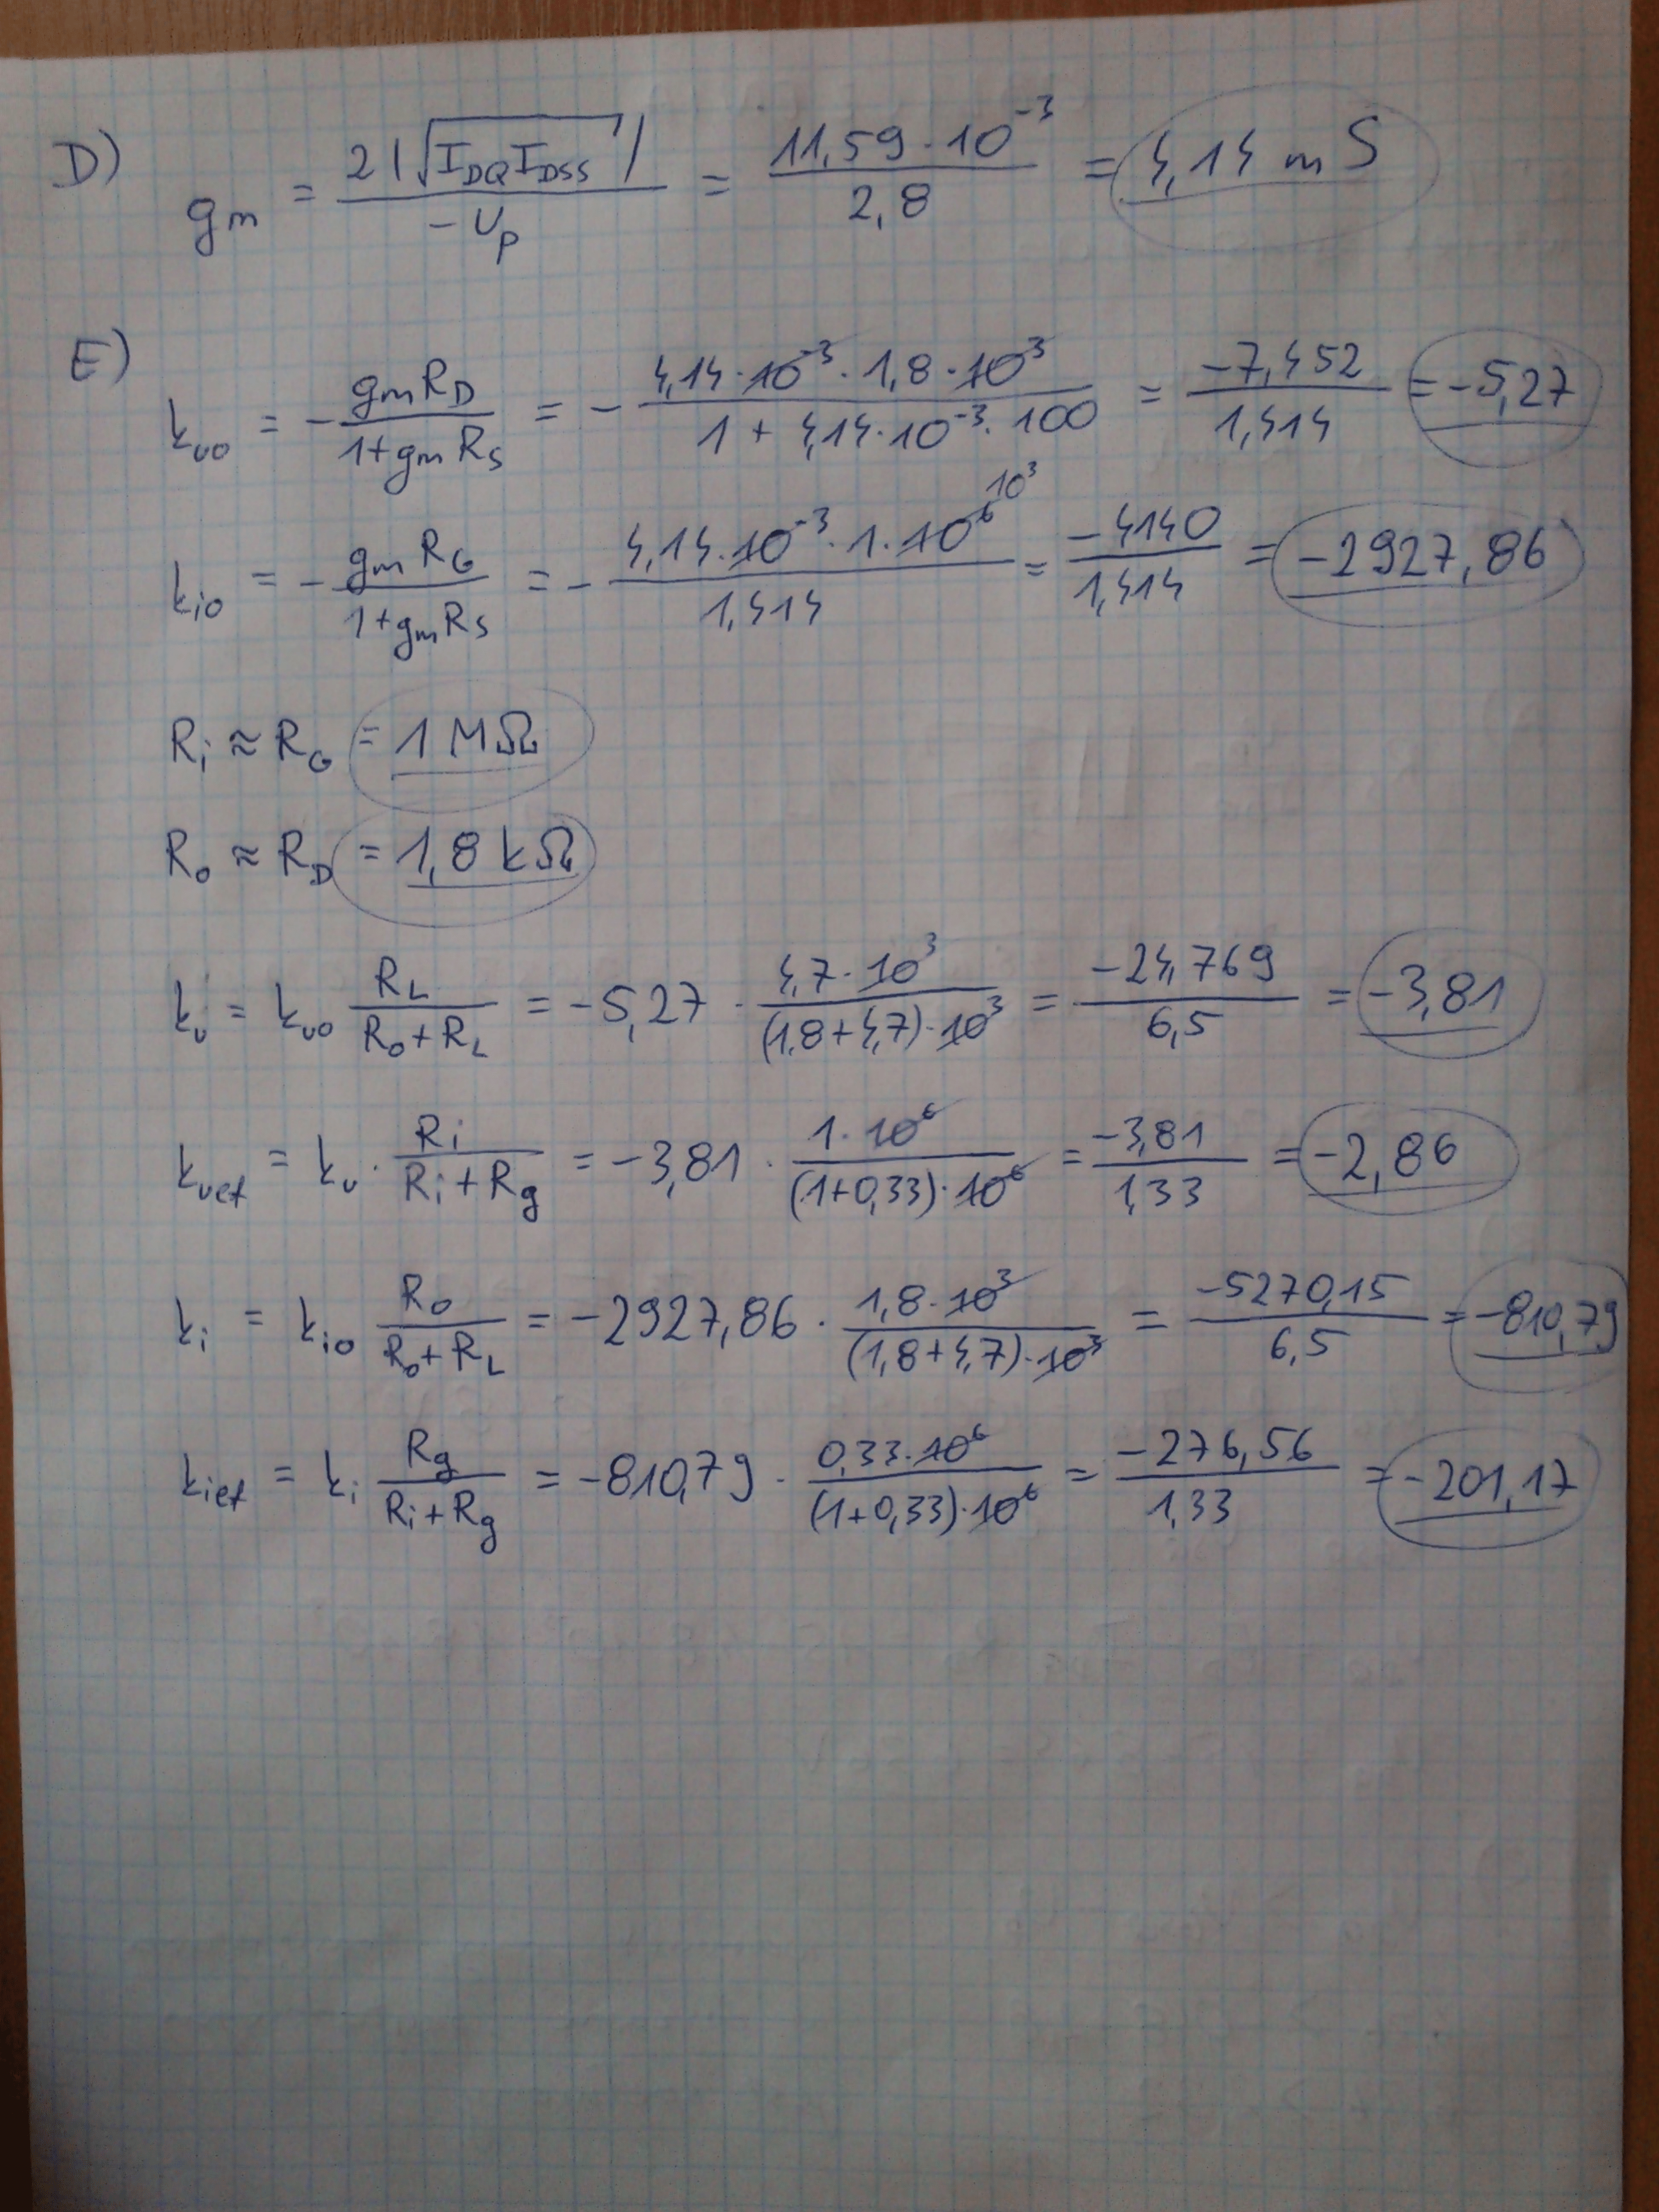 D) gm = 2|√(I_DQ I_DSS)| / -U_p = 11,59·10^-3 / 2,8 = 4,14 mS
E) k_vo = - g_m R_D / (1+g_m R_S) = - 4,14·10^-3·1,8·10^3 / (1 + 4,14·10^-3·100) = -7,452 / 1,414 = -5,27
k_io = - g_m R_G / (1+g_m R_S) = - 4,14·10^-3·1·10^6 10^3 / 1,414 = -4140 / 1,414 = -2927,86
R_i ≈ R_G = 1 MΩ
R_o ≈ R_D = 1,8 kΩ
k_v = k_vo R_L / (R_o+R_L) = -5,27 · 4,7·10^3 / (1,8+4,7)·10^3 = -24,769 / 6,5 = -3,81
k_vef = k_v · R_i / (R_i+R_g) = -3,81 · 1·10^6 / (1+0,33)·10^6 = -3,81 / 1,33 = -2,86
k_i = k_io R_o / (R_o+R_L) = -2927,86 · 1,8·10^3 / (1,8+4,7)·10^3 = -5270,15 / 6,5 = -810,79
k_ief = k_i R_g / (R_i+R_g) = -810,79 · 0,33·10^6 / (1+0,33)·10^6 = -276,56 / 1,33 = -201,17